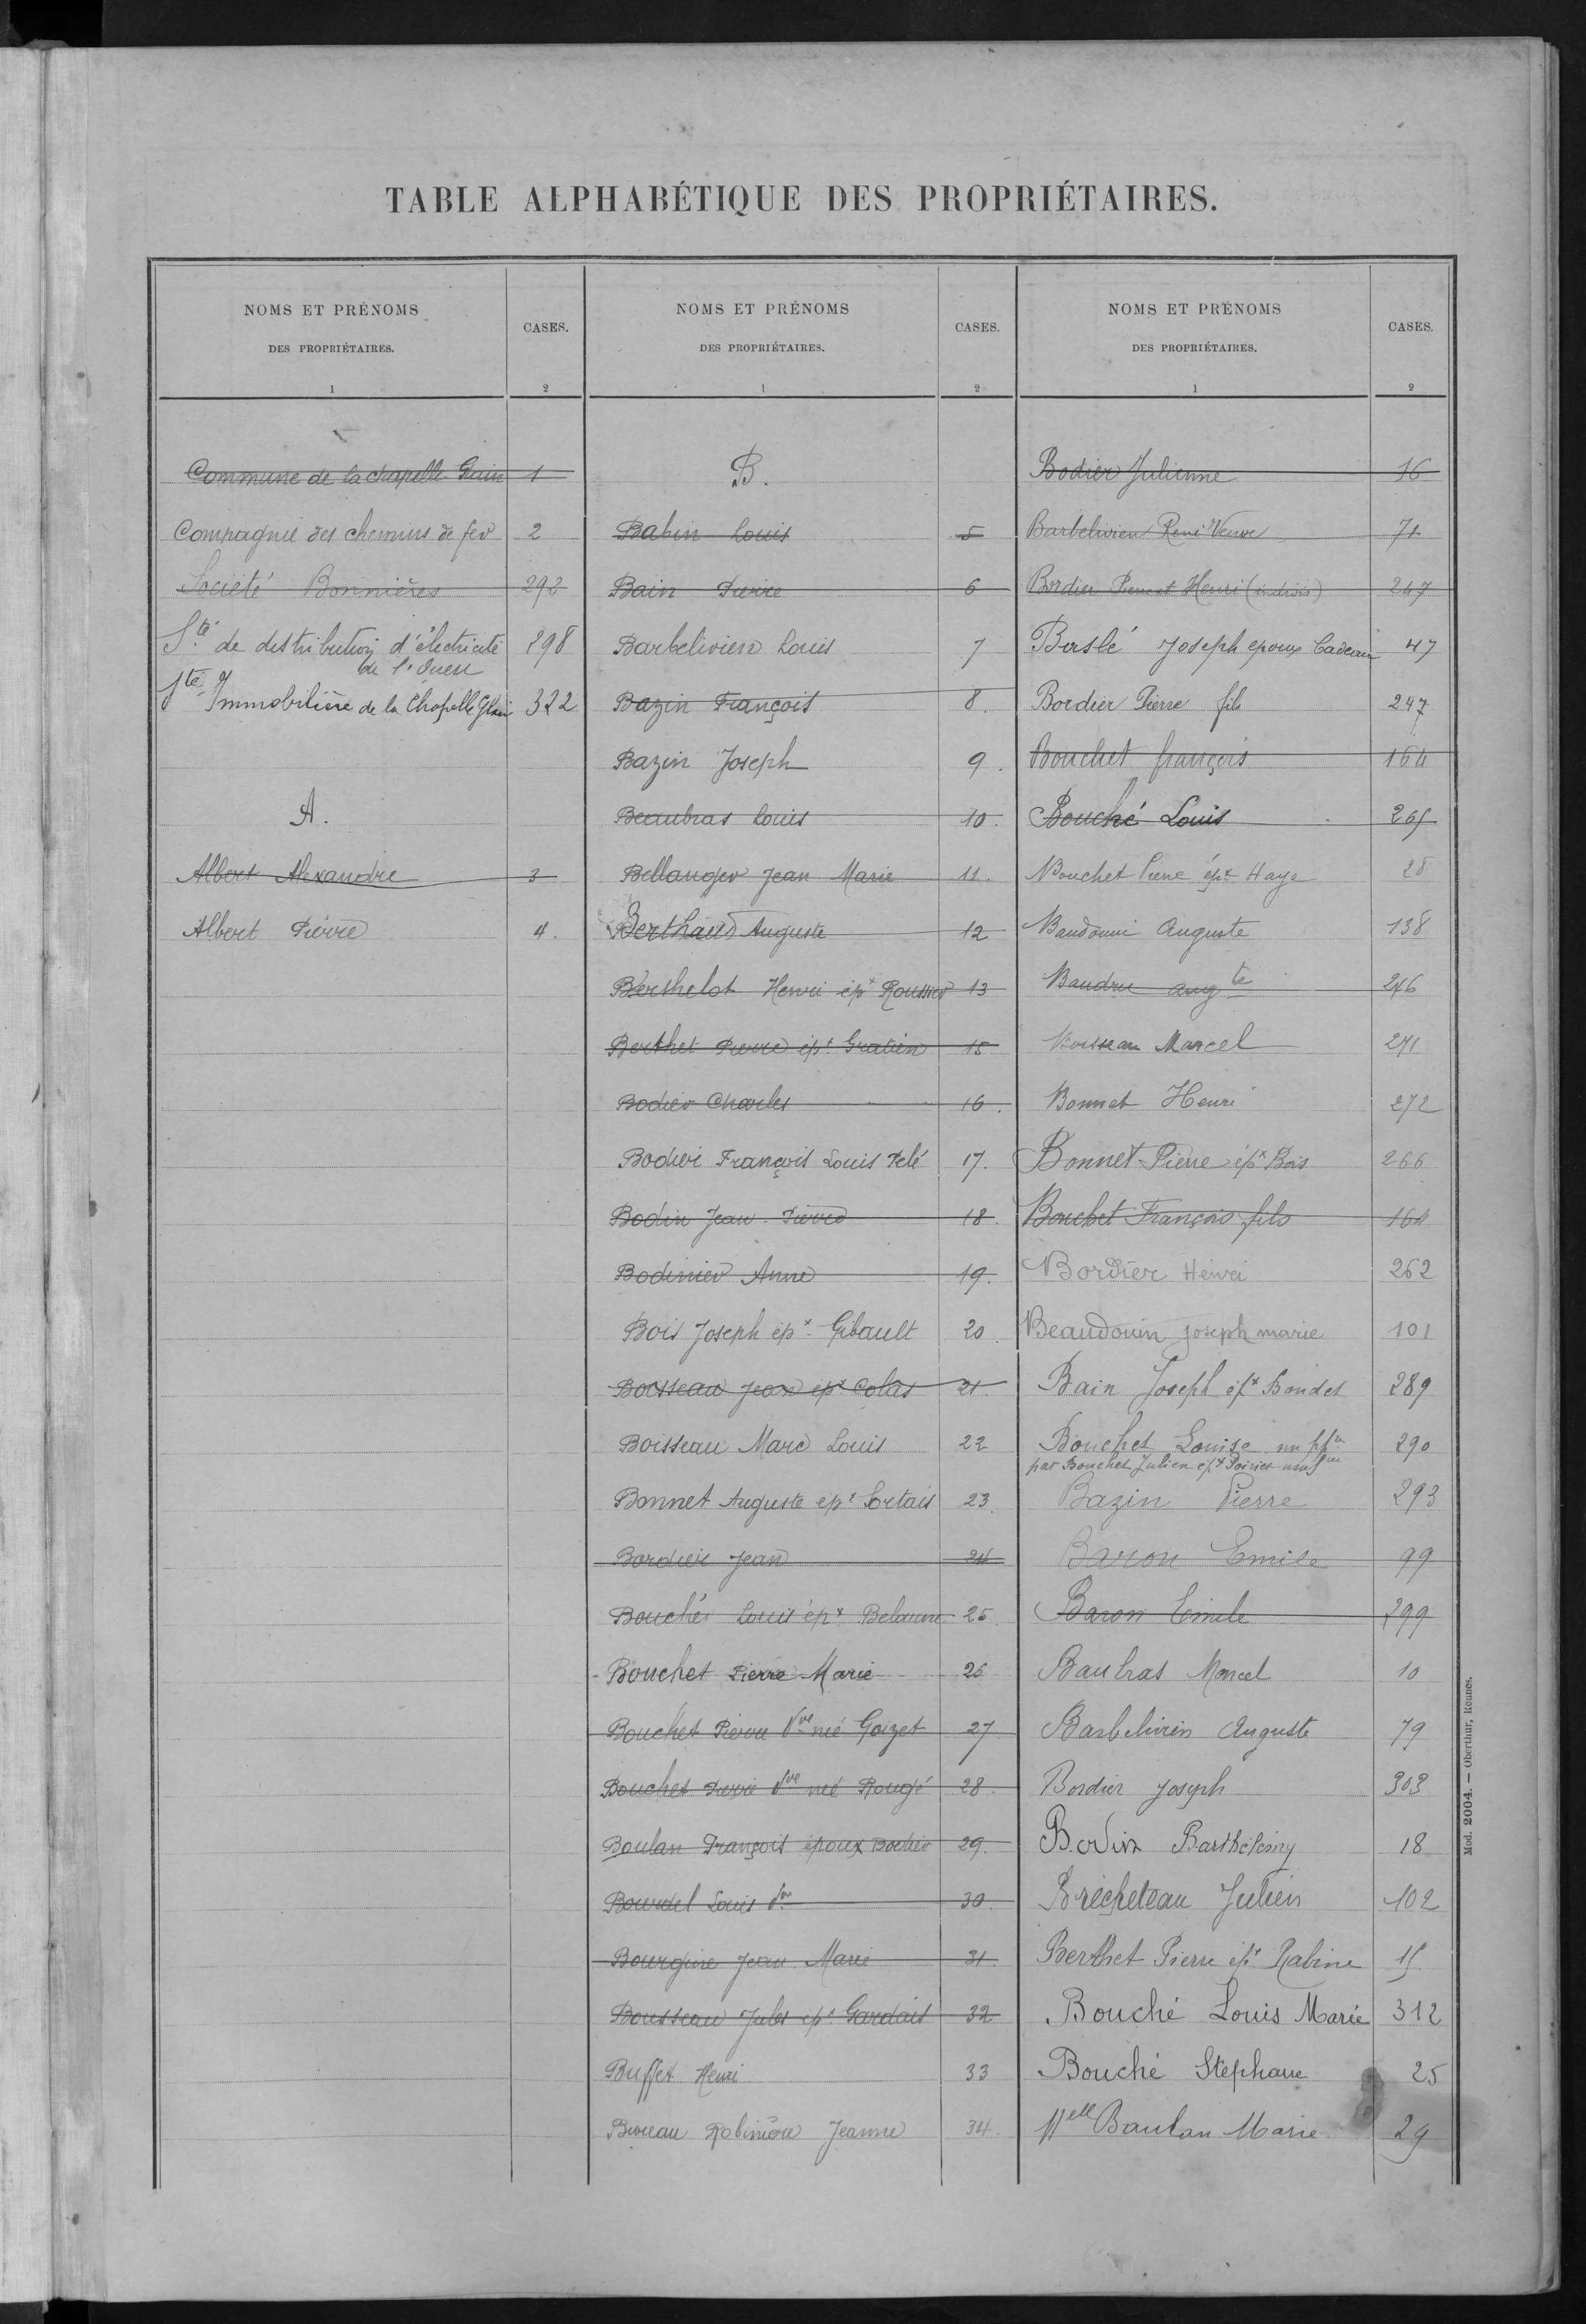 TABLE ALPHABÉTIQUE DES PROPRIÉTAIRES.
NOMS ET PRÉNOMS
DES PROPRIÉTAIRES.
1
CASES.
2
Commune de la chapelle Glain 1
Compagnie des chemins de fer 2
Société Bonnières 292
Sté de distribution d'électricité 298
de l'Ouest
Sté Immobilière de la Chapelle Glain 322
A.
Albert Alexandre 3
Albert Pierre 4.
NOMS ET PRÉNOMS
DES PROPRIÉTAIRES.
1
CASES.
2
B.
Babin Louis 5
Bain Pierre 6
Barbelivien Louis 7
Bazin François 8.
Bazin Joseph 9.
Beaubras Louis 10.
Bellanger Jean Marie 11.
Berthaud Auguste 12
Berthelot Henri épx Roussier 13
Berthet Pierre épx Gratien 15
Bodier Charles 16.
Bodier François Louis Pelé 17.
Bodin Jean Pierre 18.
Bodinier Anne 19.
Bois Joseph épx Gibault 20.
Boisseau Jean épx Colas 21.
Boisseau Marc Louis 22
Bonnet Auguste épx Sortais 23.
Bordier Jean 24
Bouché Louis épx Belanne 25.
Bouchet Pierre Marie 26
Bouchet Pierre Vve née Goizet 27
Bouchet Pierre Vve née Rougé 28.
Boulan François époux Bodier 29.
Bourdel Louis Vve 30.
Bourgine Jean Marie 31.
Bousseau Jules épx Gardais 32
Buffet Henri 33
Bureau Robinière Jeanne 34.
NOMS ET PRÉNOMS
DES PROPRIÉTAIRES.
1
CASES.
2
Bodier Julienne 16
Barbelivien René Veuve 71
Bordier Pierre et Henri (indivis) 247
Buslé Joseph époux Cadeau 47
Bordier Pierre fils 247
Bouchet françois 164
Bouché Louis 265
Bouchet Pierre épx Haye 28
Baudouin Auguste 138
Baudru Augte 246
Boisseau Marcel 271
Bonnet Henri 272
Bonnet Pierre épx Bois 266
Bouchet François fils 164
Bordier Henri 262
Beaudouin Joseph marie 101
Bain Joseph épx Boudet 289
Bouchet Louise 290
par Bouchet Julien épx Poirier
Bazin Pierre 293
Baron Emile 99
Baron Emile 299
Baubras Marcel 10
Barbelivien Auguste 79
Bordier Joseph 303
Bodin Barthélémy 18
Brécheteau Julien 102
Berthet Pierre épx Rabine 15
Bouché Louis Marie 312
Bouché Stéphane 25
Melle Baulan Marie 29
Mod. 2004. — Oberthur, Rennes.